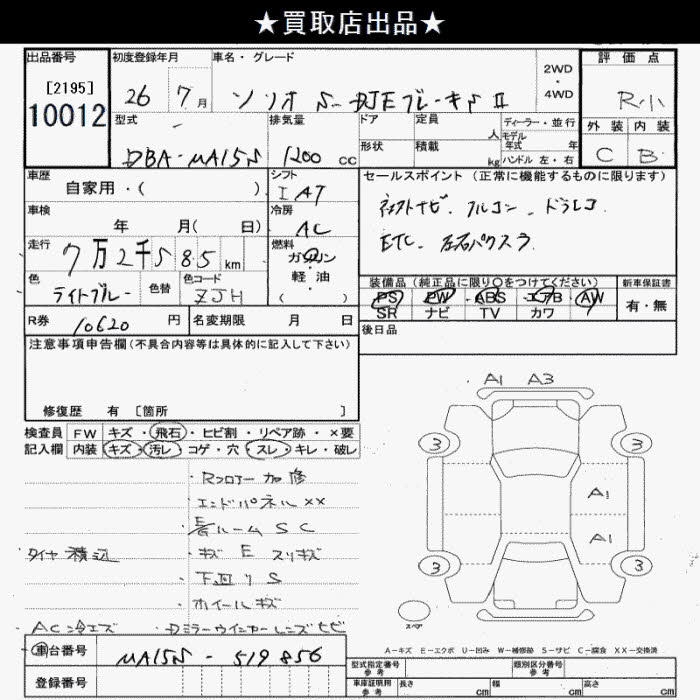 ★買取店出品★
出品番号 初度登録年月 車名・グレード 2WD・4WD 評価点
[2195]
10012 26 7月 ソリオ S-DJEブレーキS II R小
型式 排気量 ドア 定員 人 ディーラー・並行 外装 内装
モデル年式 年
形状 積載 kg ハンドル 左・右
DBA-MA15S 1200 cc C B
車歴 自家用・( ) シフト IAT セールスポイント(正常に機能するものに限ります)
車検 年 月( 日) 冷房 AC 社外ナビ. フルコン. ドラレコ
走行 7万2千585 km 燃料 ガソリン・軽・油 ( ) ETC. 左右パワスラ
色 ライトブルー 色替 色コード ZJH
装備品(純正品に限り○をつけてください) 新車保証書
PS PW ABS エアB AW 有・無
SR ナビ TV カワ
R券 10620 円 名変期限 月 日 後日品
注意事項申告欄(不具合内容等は具体的に記入して下さい)
修復歴 有 [箇所 ]
A1 A3
検査員 FW キズ・飛石・ヒビ割・リペア跡・×要
記入欄 内装 キズ・汚レ・コゲ・穴・スレ・キレ・破レ
3 3
・Rフロアー 加修
・エンドパネル ××
A1
・ルーム S C
A1
タイヤ 積込 ・キズ E スリキズ
3 3
・下回り S
・ホイールキズ
スペア
AC冷エズ ・Dミラーウインカーレンズヒビ
A-キズ E-エクボ U-凹み W-補修跡 S-サビ C-腐食 XX-交換済
車台番号 MA15S - 519856
型式指定番号 参考 類別区分番号 参考
登録番号 車庫証明用 参考 長さ cm 幅 cm 高さ cm